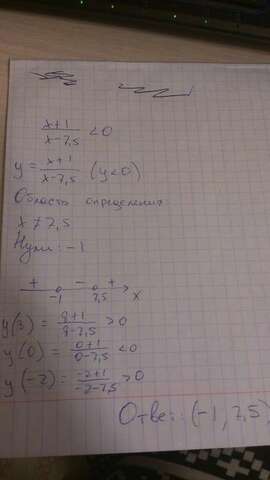 x+1 / x-7,5 <0
y = x+1 / x-7,5 (y<0)
Область определения
x ≠ 7,5
Нули: -1
+ - +
-1 7,5 x
y(8) = 8+1 / 8-7,5 >0
y(0) = 0+1 / 0-7,5 <0
y(-2) = -2+1 / -2-7,5 >0
Ответ: (-1, 7,5)